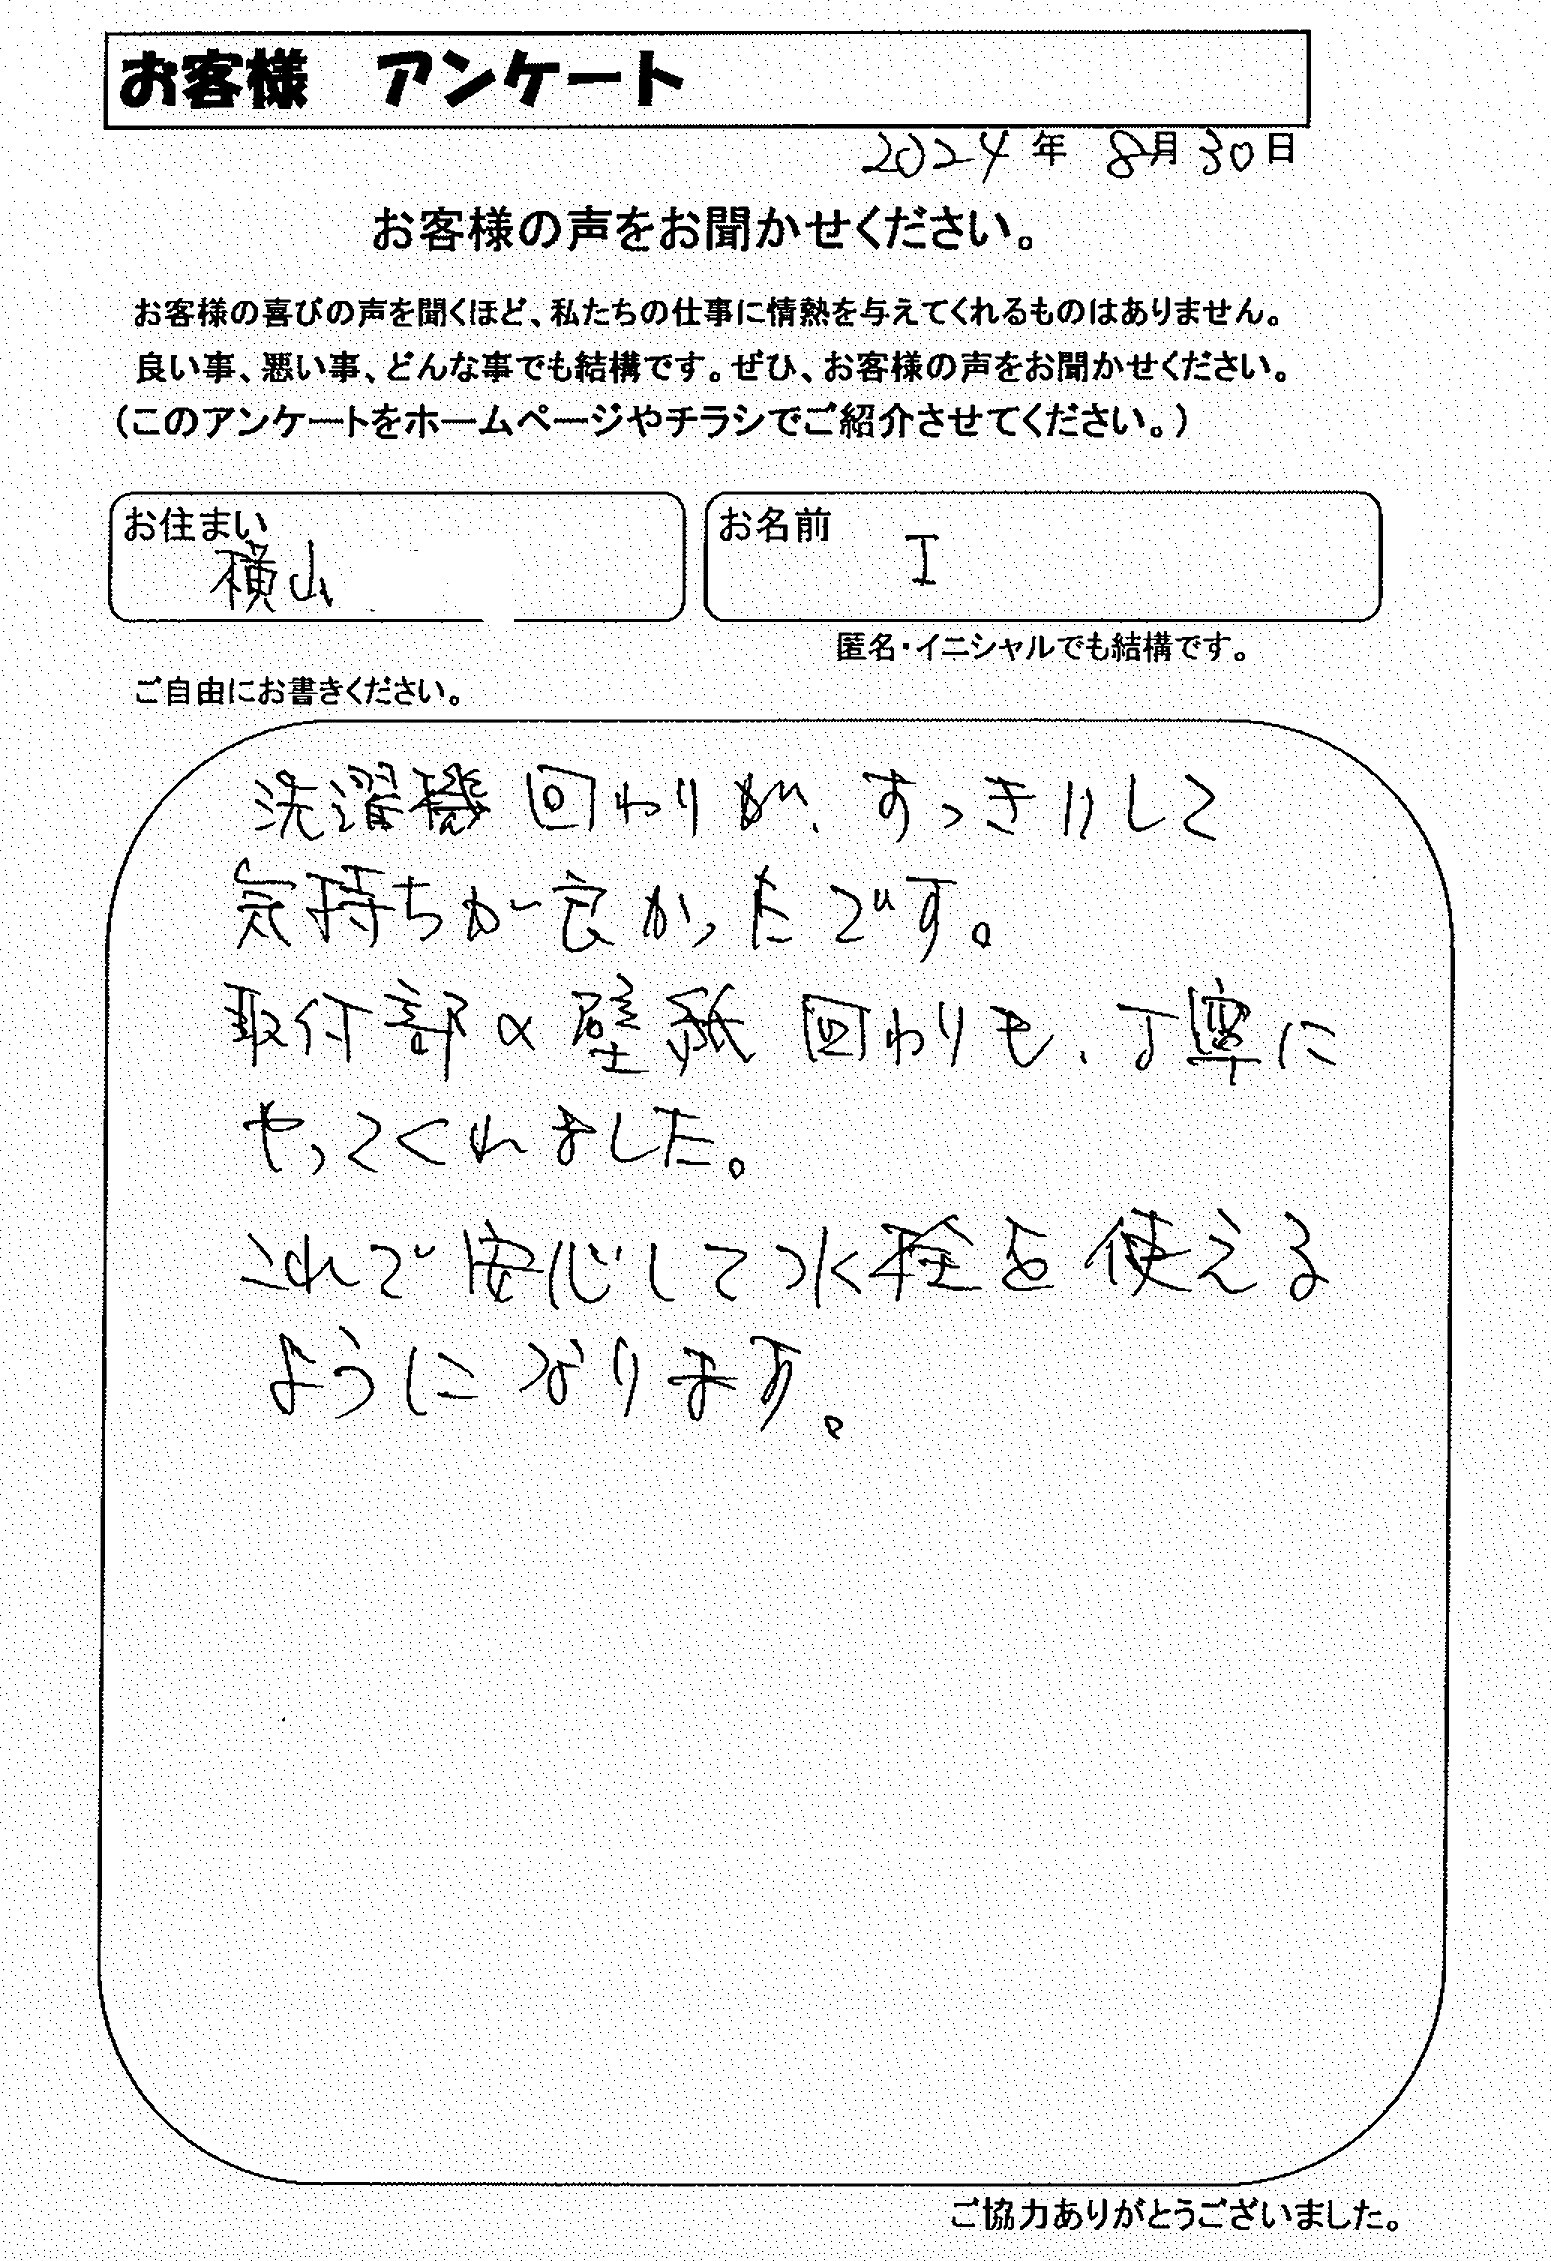 お客様 アンケート
2024年 8月30日
お客様の声をお聞かせください。
お客様の喜びの声を聞くほど、私たちの仕事に情熱を与えてくれるものはありません。
良い事、悪い事、どんな事でも結構です。ぜひ、お客様の声をお聞かせください。
(このアンケートをホームページやチラシでご紹介させてください。)
お住まい
横山
お名前
I
匿名・イニシャルでも結構です。
ご自由にお書きください。
洗濯機回わりが、すっきりして
気持ちが良かったです。
取付部の壁紙回わりも、丁寧に
やってくれました。
これで安心して水栓を使える
ようになります。
ご協力ありがとうございました。